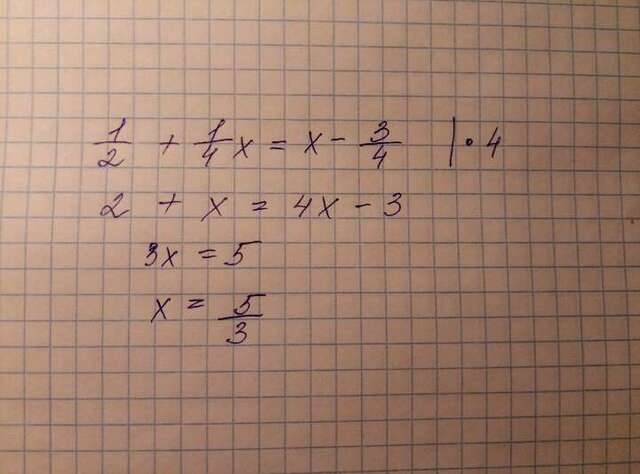 1/2 + 1/4 x = x - 3/4 | • 4
2 + x = 4x - 3
3x = 5
x = 5/3